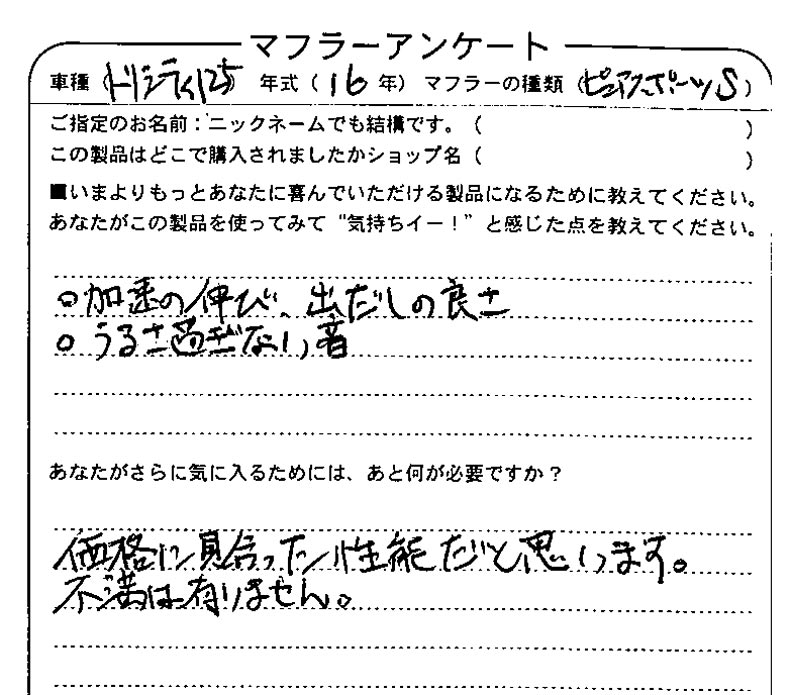 マフラーアンケート
車種（トリシティ125） 年式（16年） マフラーの種類（ピュアスポーツS）
ご指定のお名前：ニックネームでも結構です。（ ）
この製品はどこで購入されましたかショップ名（ ）
■いまよりもっとあなたに喜んでいただける製品になるために教えてください。
あなたがこの製品を使ってみて“気持ちイー！”と感じた点を教えてください。
○加速の伸び、出だしの良さ
○うるさ過ぎない音
あなたがさらに気に入るためには、あと何が必要ですか？
価格に見合った性能だと思います。
不満は有りません。